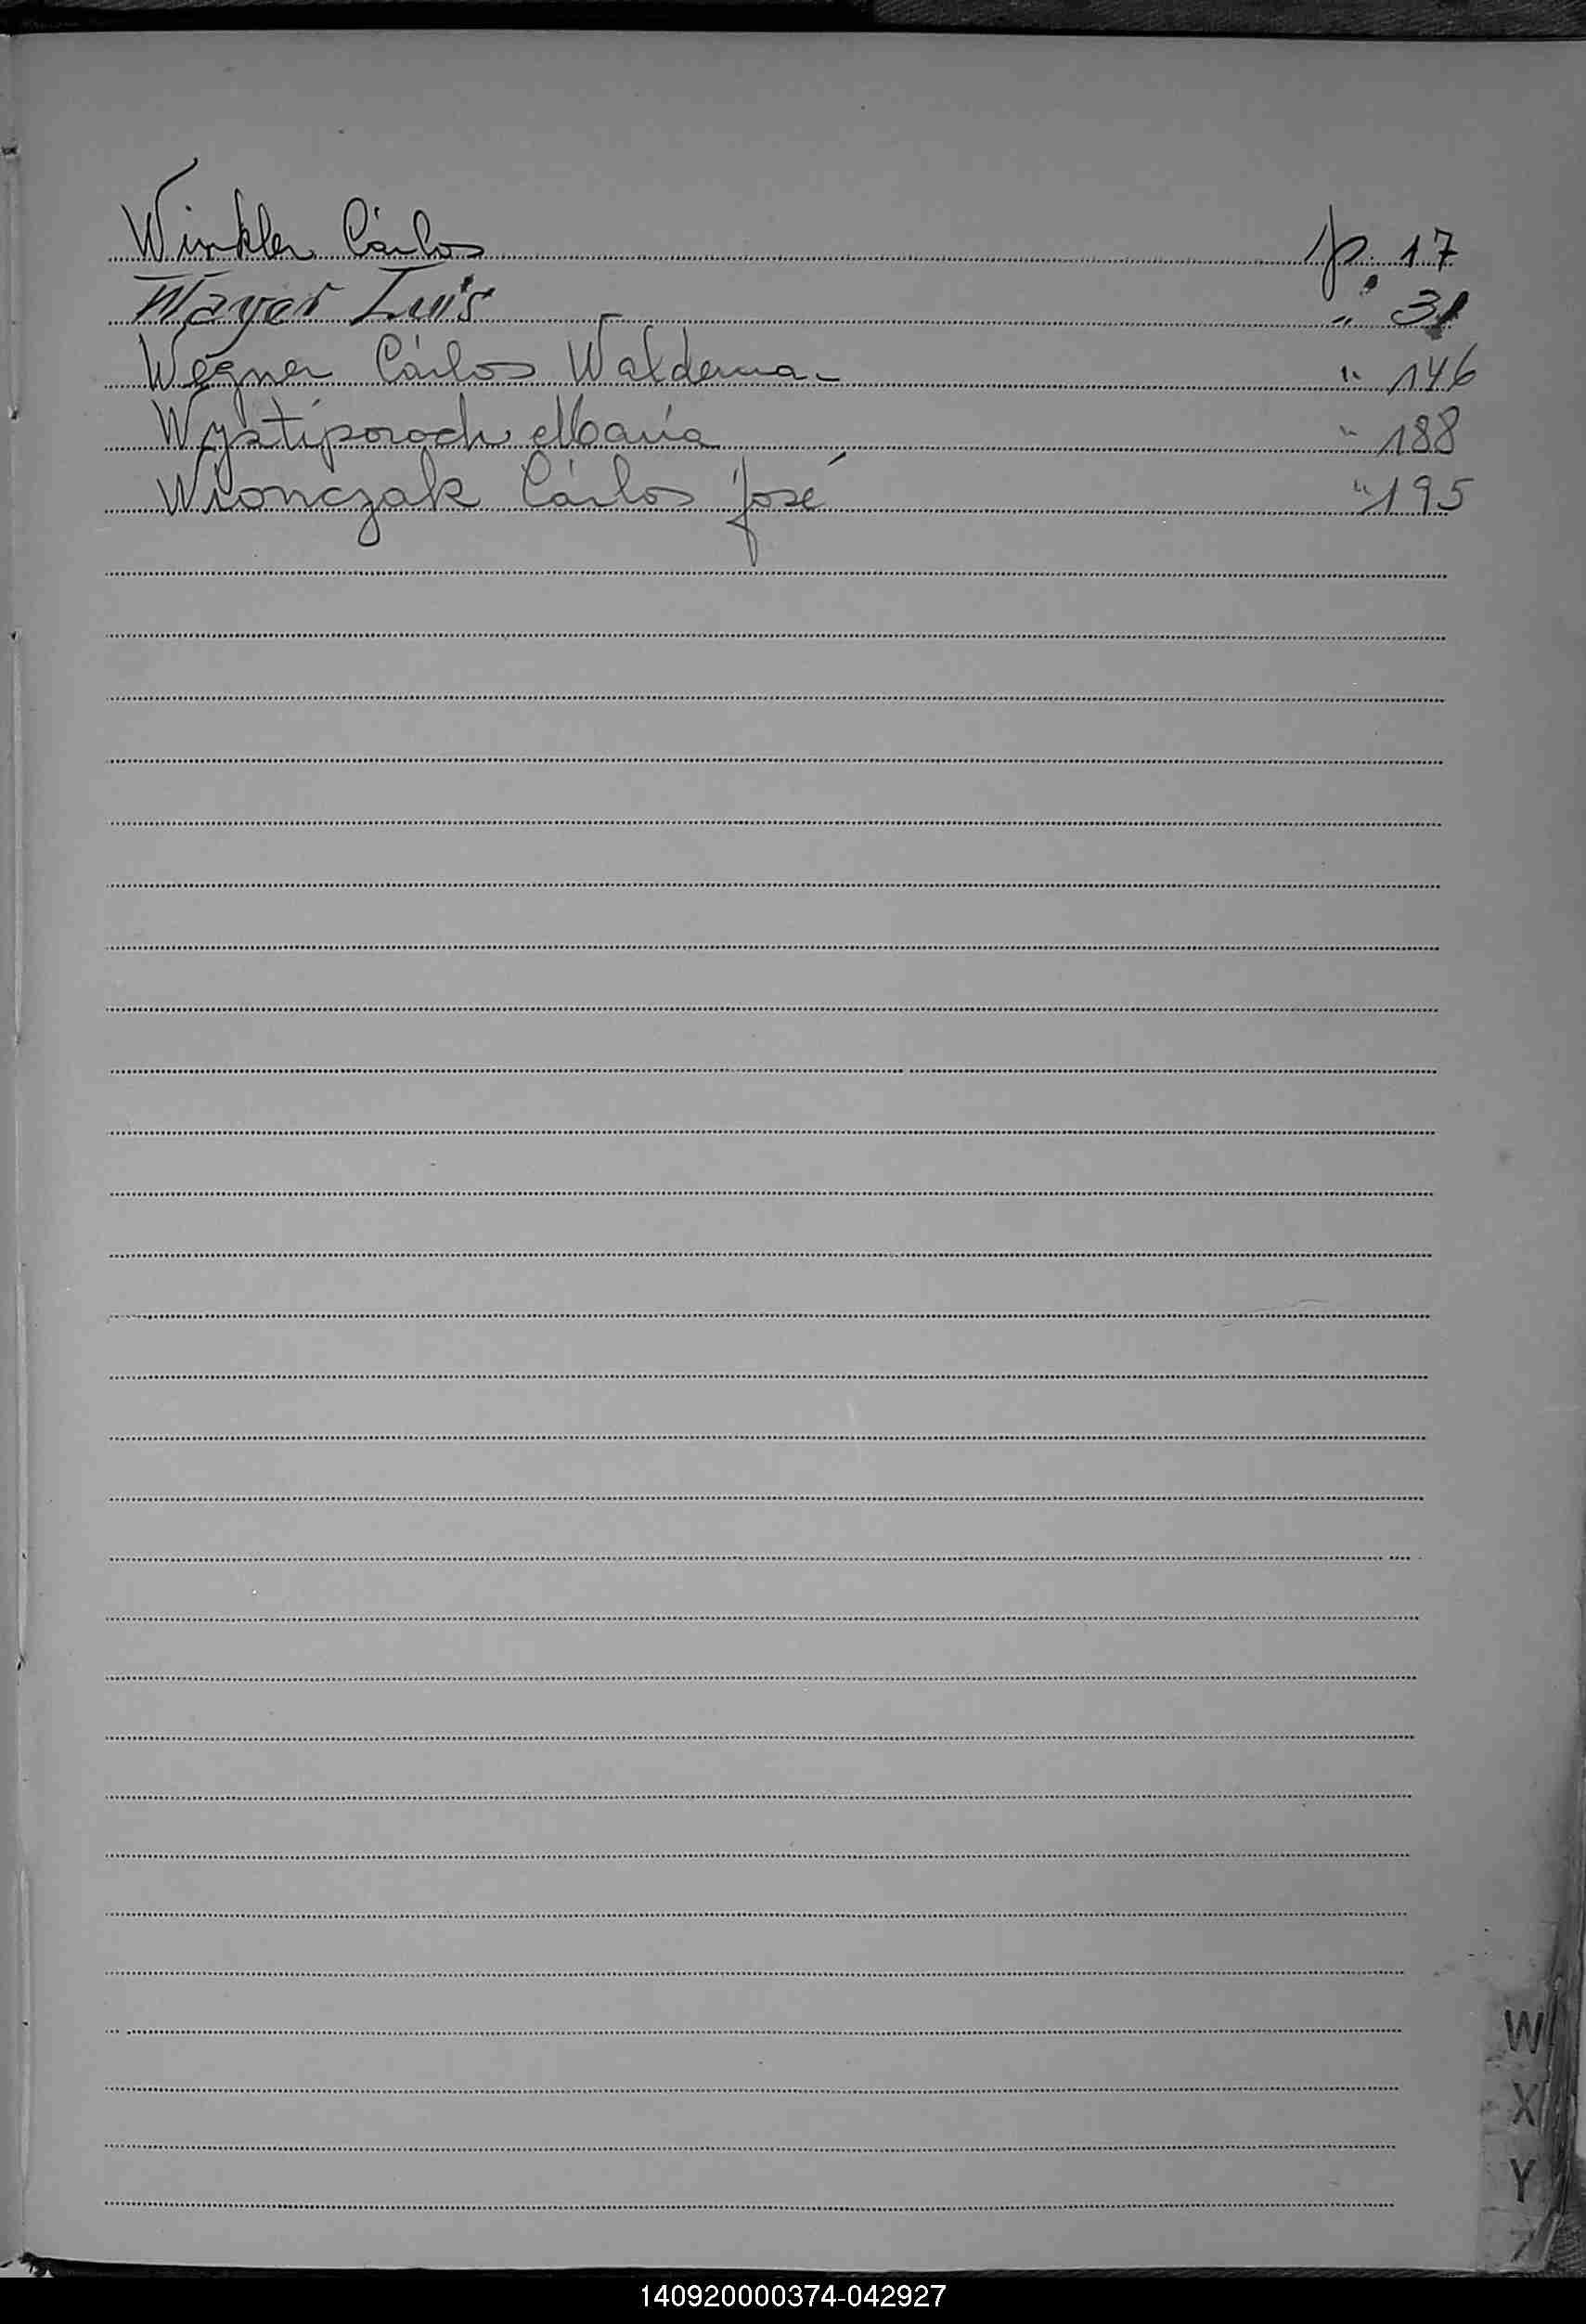 Winkler Cárlos p. 17
Wayer Luis " 31
Wegner Cárlos Waldemar " 146
Wystiporoch María " 188
Wionczak Cárlos José " 195
W
X
Y
Z
140920000374-042927